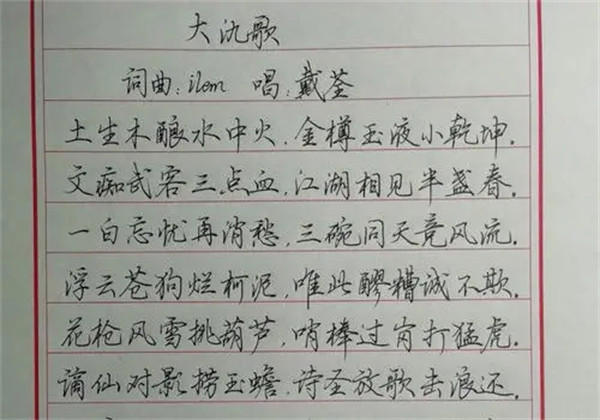 大氿歌
词曲:ilem 唱:戴荃
土生木酿水中火,金樽玉液小乾坤.
文痴武客三点血,江湖相见半盏春.
一白忘忧再消愁,三碗同天竞风流.
浮云苍狗烂柯泥,唯此醪糟诚不欺.
花枪风雪挑葫芦,哨棒过岗打猛虎.
谪仙对影捞玉蟾,诗圣放歌击浪还.